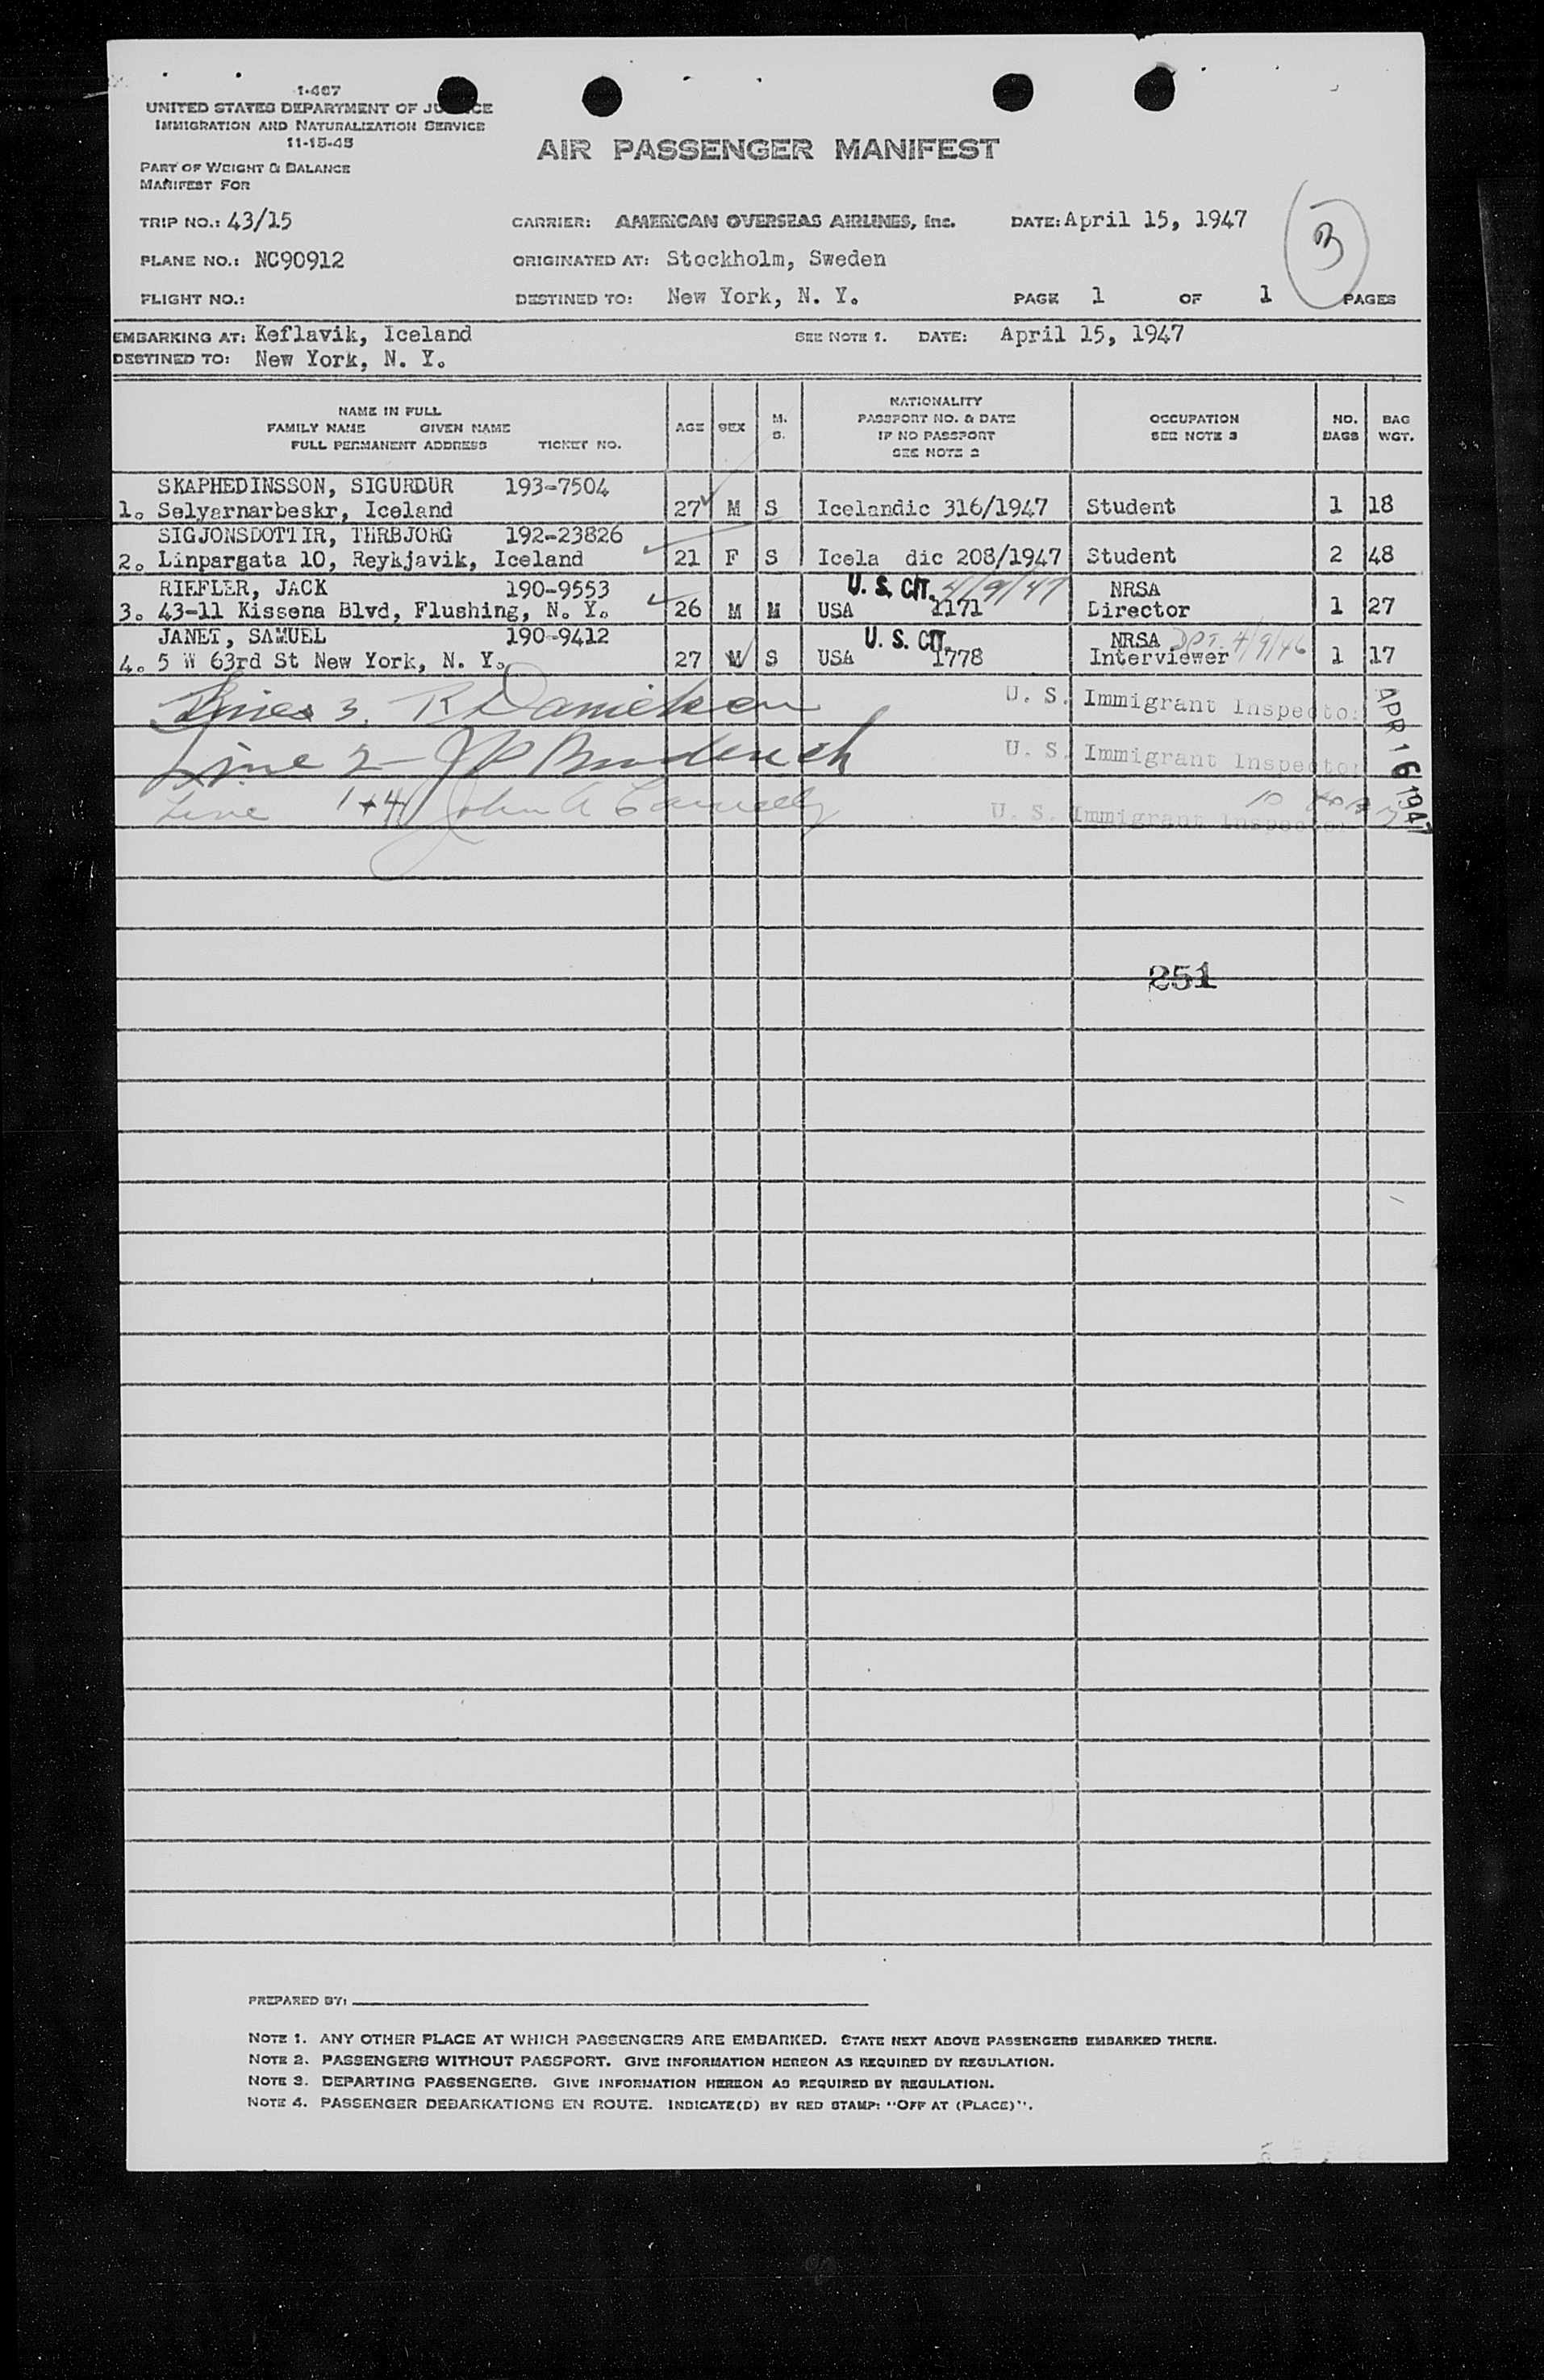 1-467
UNITED STATES DEPARTMENT OF JUSTICE
IMMIGRATION AND NATURALIZATION SERVICE
11-15-45
AIR PASSENGER MANIFEST
PART OF WEIGHT & BALANCE
MANIFEST FOR
TRIP NO.: 43/15 CARRIER: AMERICAN OVERSEAS AIRLINES, Inc. DATE: April 15, 1947
3
PLANE NO.: NC90912 ORIGINATED AT: Stockholm, Sweden
FLIGHT NO.: DESTINED TO: New York, N. Y. PAGE 1 OF 1 PAGES
EMBARKING AT: Keflavik, Iceland SEE NOTE 1. DATE: April 15, 1947
DESTINED TO: New York, N. Y.
NAME IN FULL
FAMILY NAME GIVEN NAME
FULL PERMANENT ADDRESS TICKET NO.
AGE SEX M. S.
NATIONALITY
PASSPORT NO. & DATE
IF NO PASSPORT
SEE NOTE 2
OCCUPATION
SEE NOTE 3
NO. BAGS
BAG WGT.
SKAPHEDINSSON, SIGURDUR 193-7504
1. Selyarnarbeskr, Iceland 27 M S Icelandic 316/1947 Student 1 18
SIGJONSDOTTIR, THRBJORG 192-23826
2. Linpargata 10, Reykjavik, Iceland 21 F S Icela dic 208/1947 Student 2 48
RIEFLER, JACK 190-9553 U. S. CIT. 4/9/47 NRSA
3. 43-11 Kissena Blvd, Flushing, N. Y. 26 M M USA 1171 Director 1 27
JANET, SAMUEL 190-9412 U. S. CIT. NRSA 4/9/46
4. 5 W 63rd St New York, N. Y. 27 M S USA 1778 Interviewer 1 17
Lines 3. R Danielson U. S. Immigrant Inspector
Line 2 - U. S. Immigrant Inspector
Line 1+4 John A U. S. Immigrant Inspector
APR 16 1947
251
PREPARED BY:
NOTE 1. ANY OTHER PLACE AT WHICH PASSENGERS ARE EMBARKED. STATE NEXT ABOVE PASSENGERS EMBARKED THERE.
NOTE 2. PASSENGERS WITHOUT PASSPORT. GIVE INFORMATION HEREON AS REQUIRED BY REGULATION.
NOTE 3. DEPARTING PASSENGERS. GIVE INFORMATION HEREON AS REQUIRED BY REGULATION.
NOTE 4. PASSENGER DEBARKATIONS EN ROUTE. INDICATE(D) BY RED STAMP: "OFF AT (PLACE)".